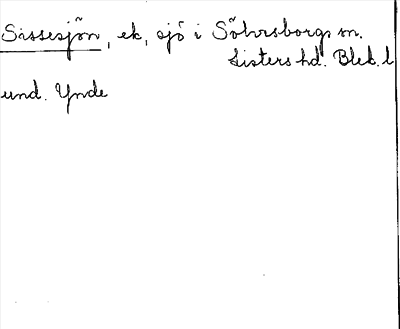 Sissesjön, ek, sjö i Sölvesborgs sn.
Listers hd. Blek. l
und. Ynde